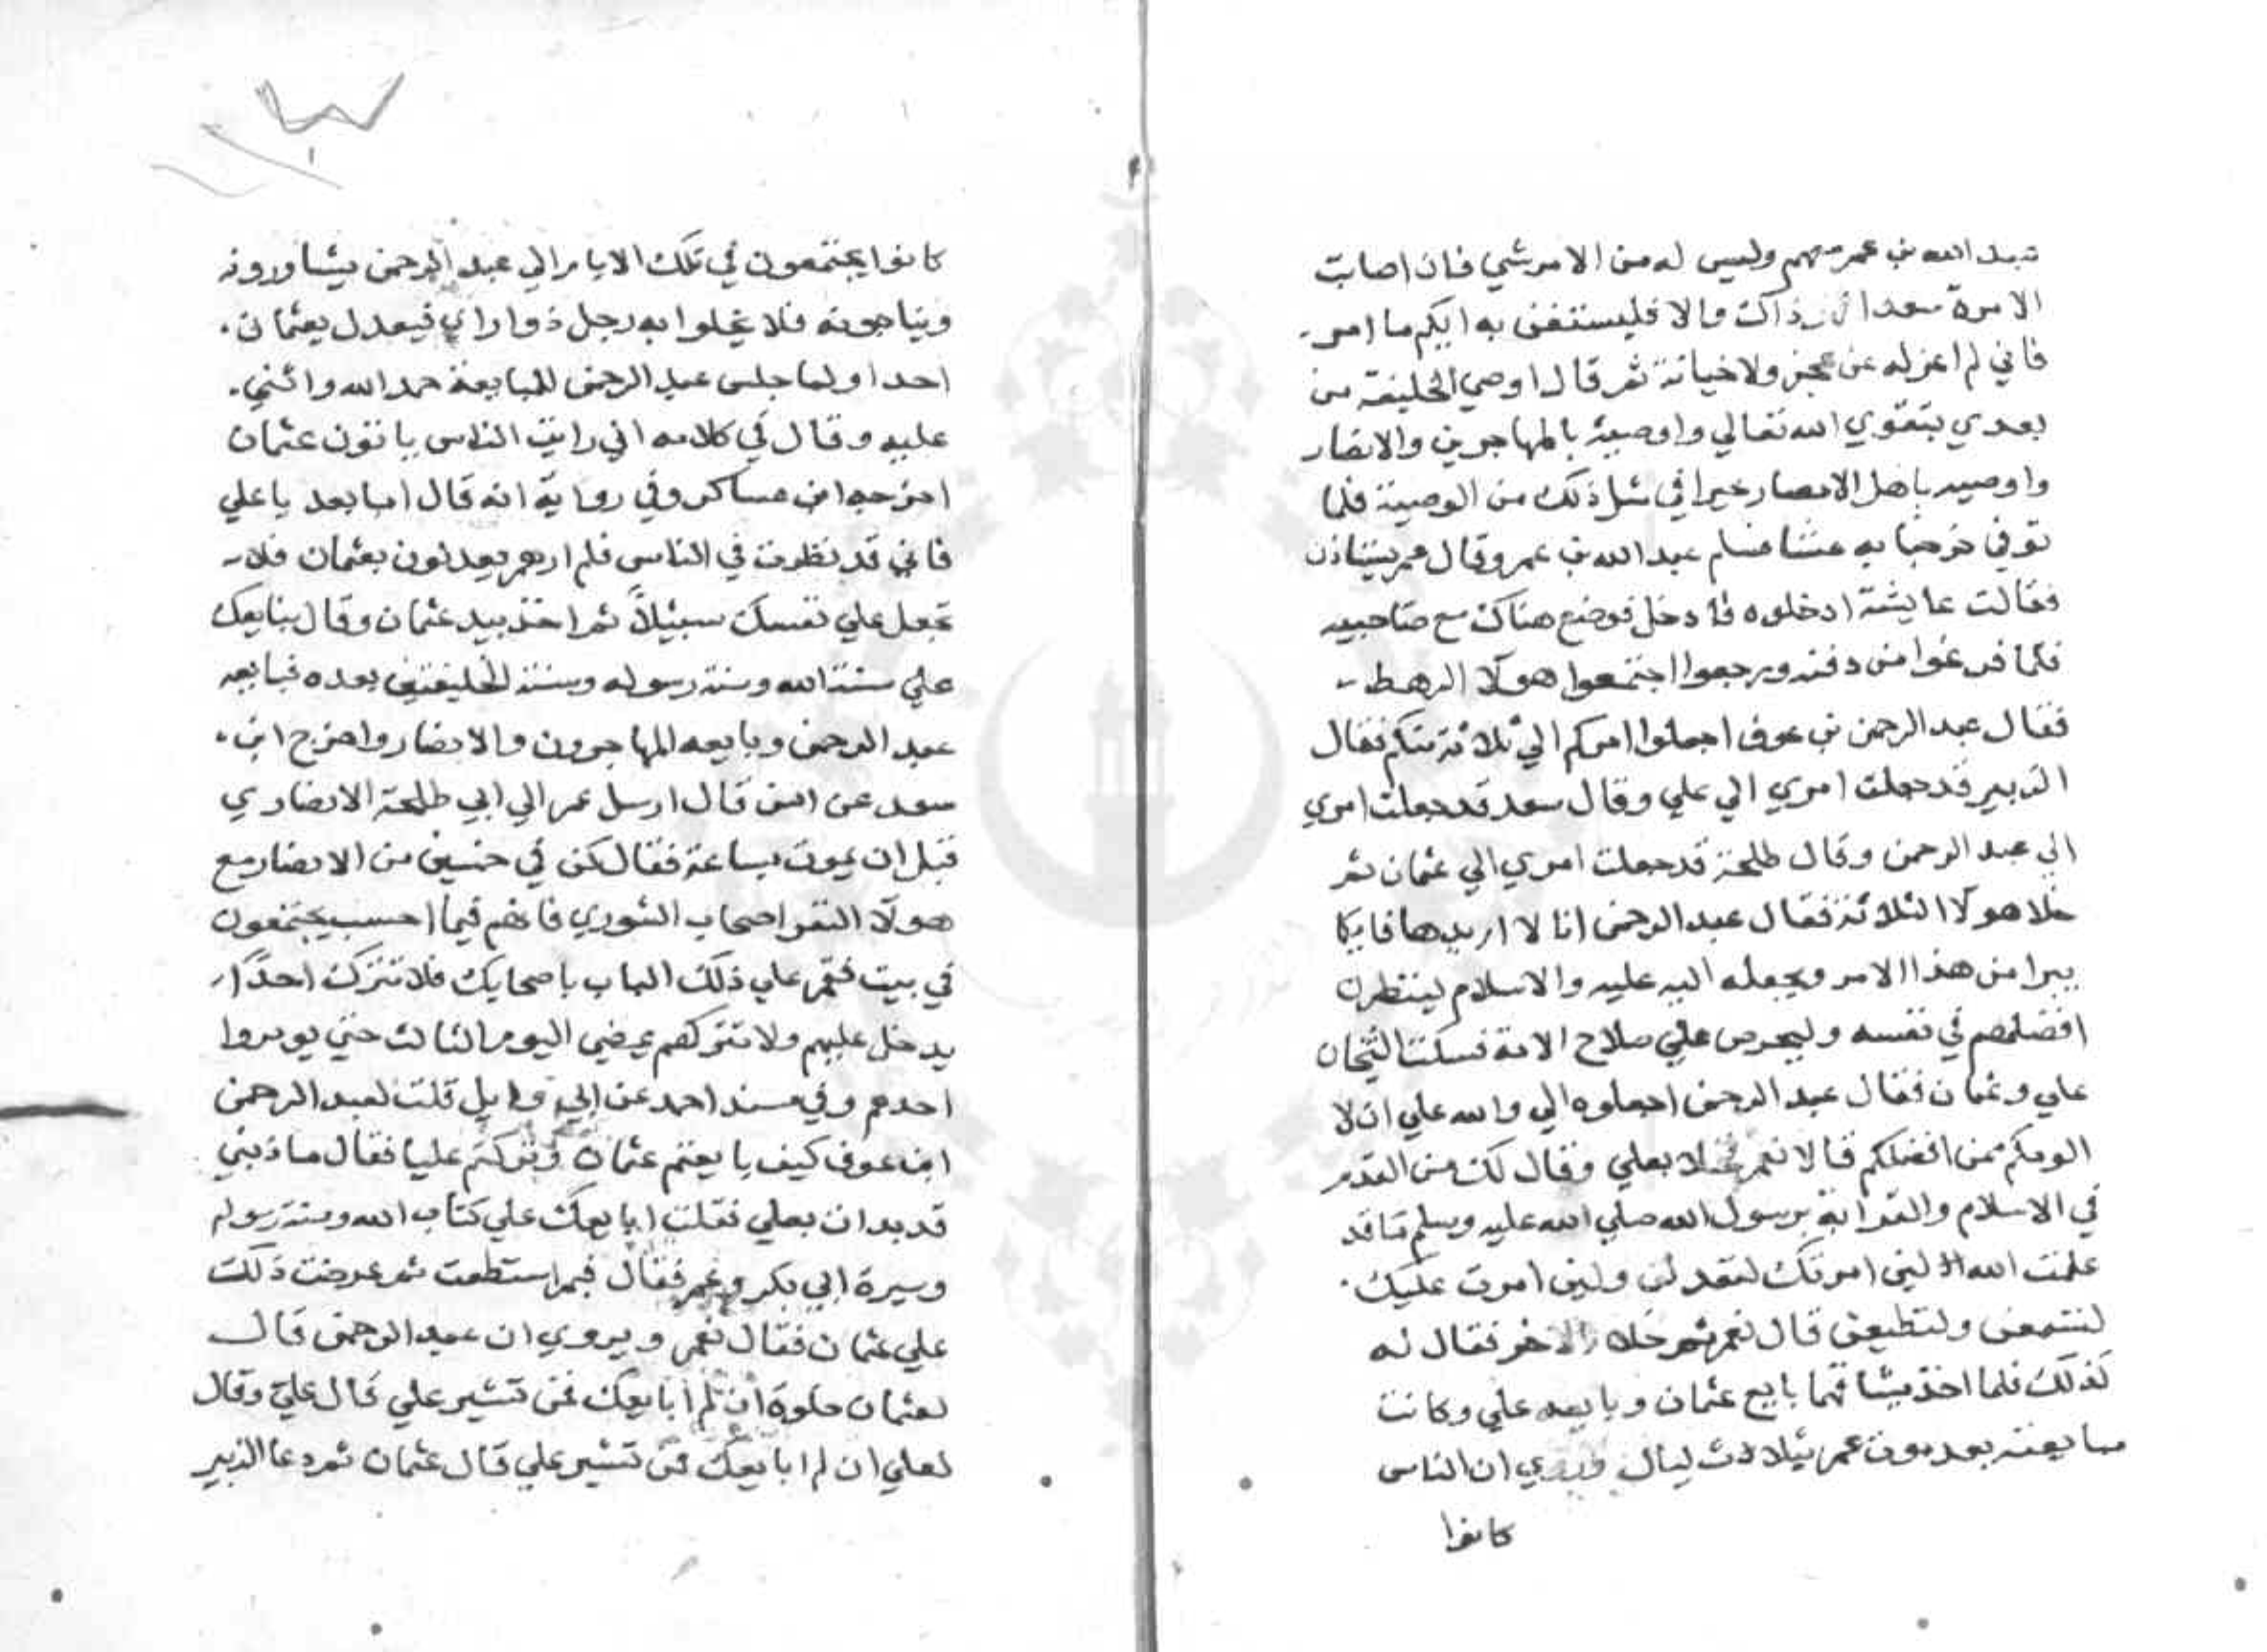 عبد الله بن عمر معهم وليس له من الامر شي فان اصابت
الامرة سعدا فهو ذاك والا فليستعن به ايكم ما امر
فاني لم اعزله عن عجز ولا خيانة ثم قال اوصي الخليفة من
بعدي بتقوي الله تعالي واوصيه بالمهاجرين والانصار
واوصيه باهل الامصار خيرا في مثل ذلك من الوصية فلما
توفي خرجنا به مشا فسلم عبد الله بن عمر وقال عمر يستاذن
فقالت عايشة ادخلوه فادخل فوضع هناك مع صاحبيه
فلما فرغوا من دفنه ورجعوا اجتمعوا هولا الرهط
فقال عبد الرحمن بن عوف اجعلوا امركم الي ثلاثة منكم فقال
الزبير قد جعلت امري الي علي وقال سعد قد جعلت امري
الي عبد الرحمن وقال طلحة قد جعلت امري الي عثمان ثم
خلا هولا الثلاثة فقال عبد الرحمن انا لا اريدها فايكما
يبرا من هذا الامر ويجعله اليه عليه والاسلام لينظرن
افضلهم في نفسه وليحرص علي صلاح الامة فسكت الشيخان
علي وعثمان فقال عبد الرحمن اجعلوه الي والله علي ان لا
الومكم عن افضلكم قالا نعم فخلا بعلي وقال لك من القدم
في الاسلام والقرابة برسول الله صلي الله عليه وسلم ما قد
علمت الله لين امرتك لتعدلن ولين امرت عليك
لتسمعن ولتطيعن قال نعم ثم خلا بالاخر فقال له
كذلك فلما اخذ ميثاقهما بايع عثمان وبايعه علي وكانت
مبايعته بعد موت عمر بثلاث ليال وروي ان الناس
كانوا
كانوا يجتمعون في تلك الايام الي عبد الرحمن يشاورونه
ويناجونه فلا يخلوا به رجل ذوا راي فيعدل بعثمان
احدا ولما جلس عبد الرحمن للمبايعة حمد الله واثني
عليه وقال في كلامه اني رايت الناس يابون عثمان
اخرجه ابن عساكر وفي رواية انه قال اما بعد يا علي
فاني قد نظرت في الناس فلم ارهم يعدلون بعثمان فلا
تجعل علي نفسك سبيلا ثم اخذ بيد عثمان وقال نبايعك
علي سنة الله وسنة رسوله وسنة الخليفتين بعده فبايعه
عبد الرحمن وبايعه المهاجرون والانصار واخرج ابن
سعد عن انس قال ارسل عمر الي ابي طلحة الانصاري
قبل ان يموت بساعة فقال كن في خمسين من الانصار مع
هولا النفر اصحاب الشوري فانهم فيما احسب يجتمعون
في بيت فقم علي ذلك الباب باصحابك فلا تترك احدا
يدخل عليهم ولا تتركهم يمضي اليوم الثالث حتي يومروا
احدهم وفي مسند احمد عن ابي وايل قلت لعبد الرحمن
ابن عوف كيف بايعتم عثمان وتركتم عليا فقال ما ذنبي
قد بدات بعلي فقلت ابايعك علي كتاب الله وسنة رسوله
وسيرة ابي بكر وعمر فقال فيما استطعت ثم عرضت ذلك
علي عثمان فقال نعم ويروي ان عبد الرحمن قال
لعثمان خلوة ان لم ابايعك فمن تشير علي قال علي وقال
لعلي ان لم ابايعك فمن تشير علي قال عثمان ثم دعا الزبير